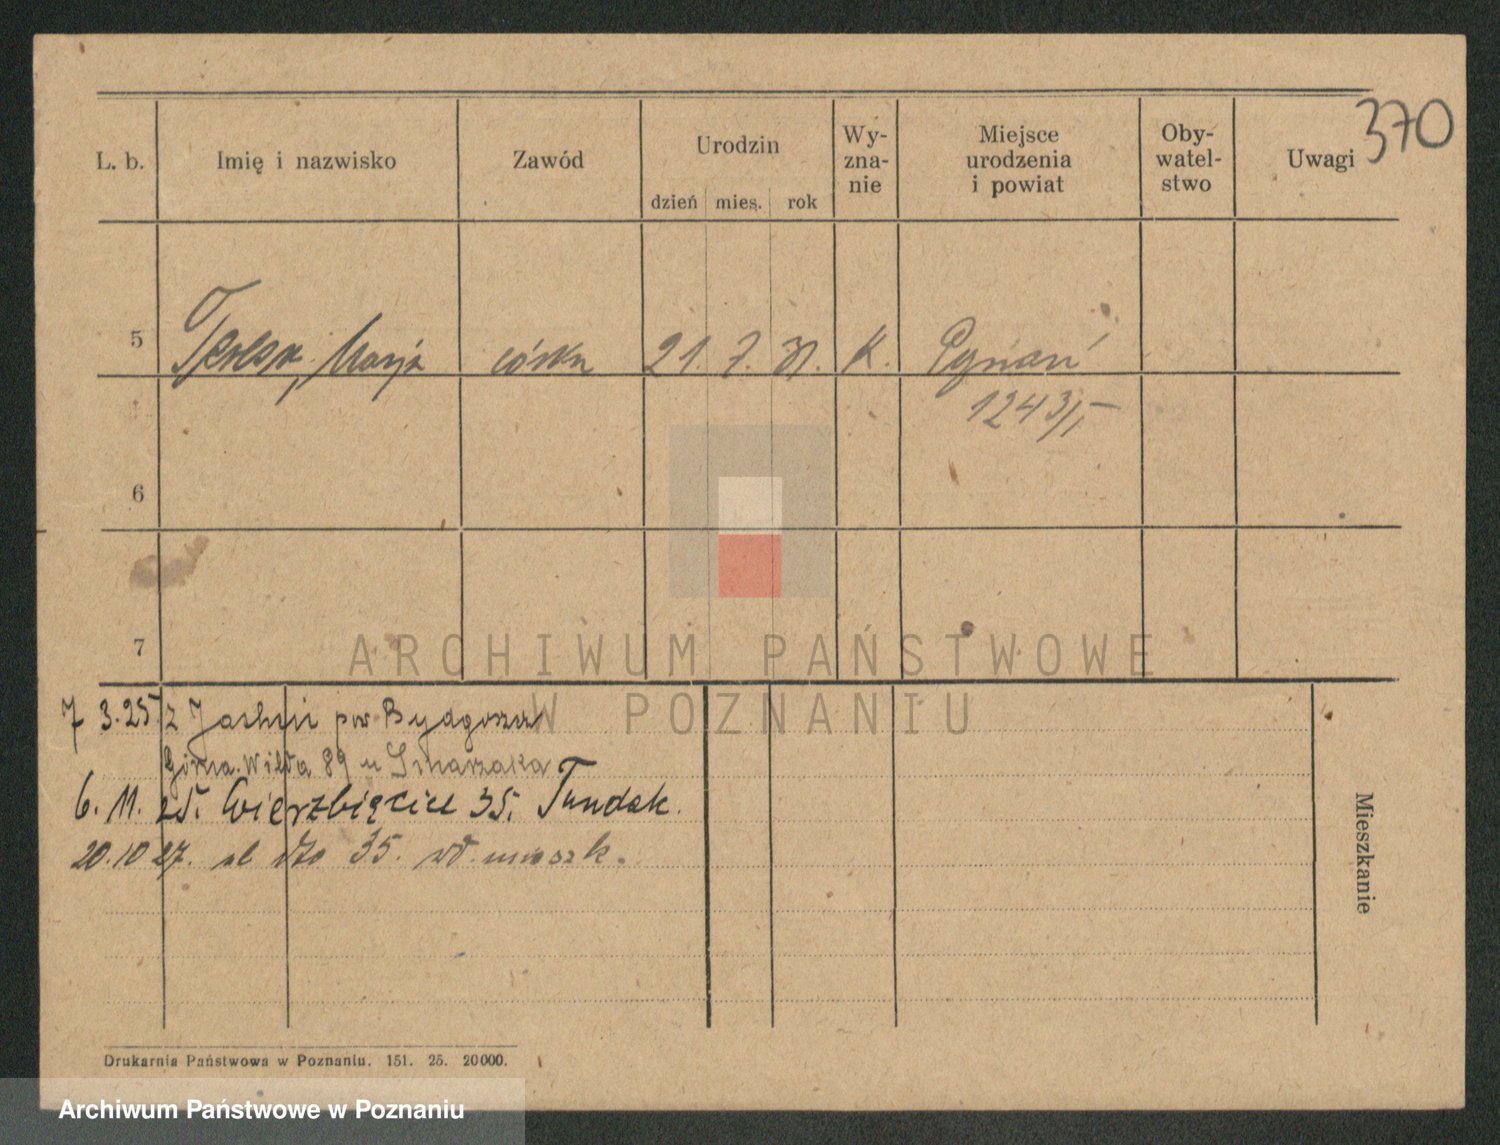 370
L. b. Imię i nazwisko Zawód Urodzin Wy- zna- nie Miejsce urodzenia i powiat Oby- watel- stwo Uwagi
dzień mies. rok
5 Teresa, Marja córka 21. 7. 31. K. Poznań
1243/
6
7
ARCHIWUM PAŃSTWOWE
W POZNANIU
7 3.25 z pow Bydgoszcz
Górna Wilda 89 u Smarzaka
6. 11. 25. Wierzbięcice 35. Tundak.
20.10 27. dto 35. mieszk.
Mieszkanie
Drukarnia Państwowa w Poznaniu. 151. 25. 20000.
Archiwum Państwowe w Poznaniu